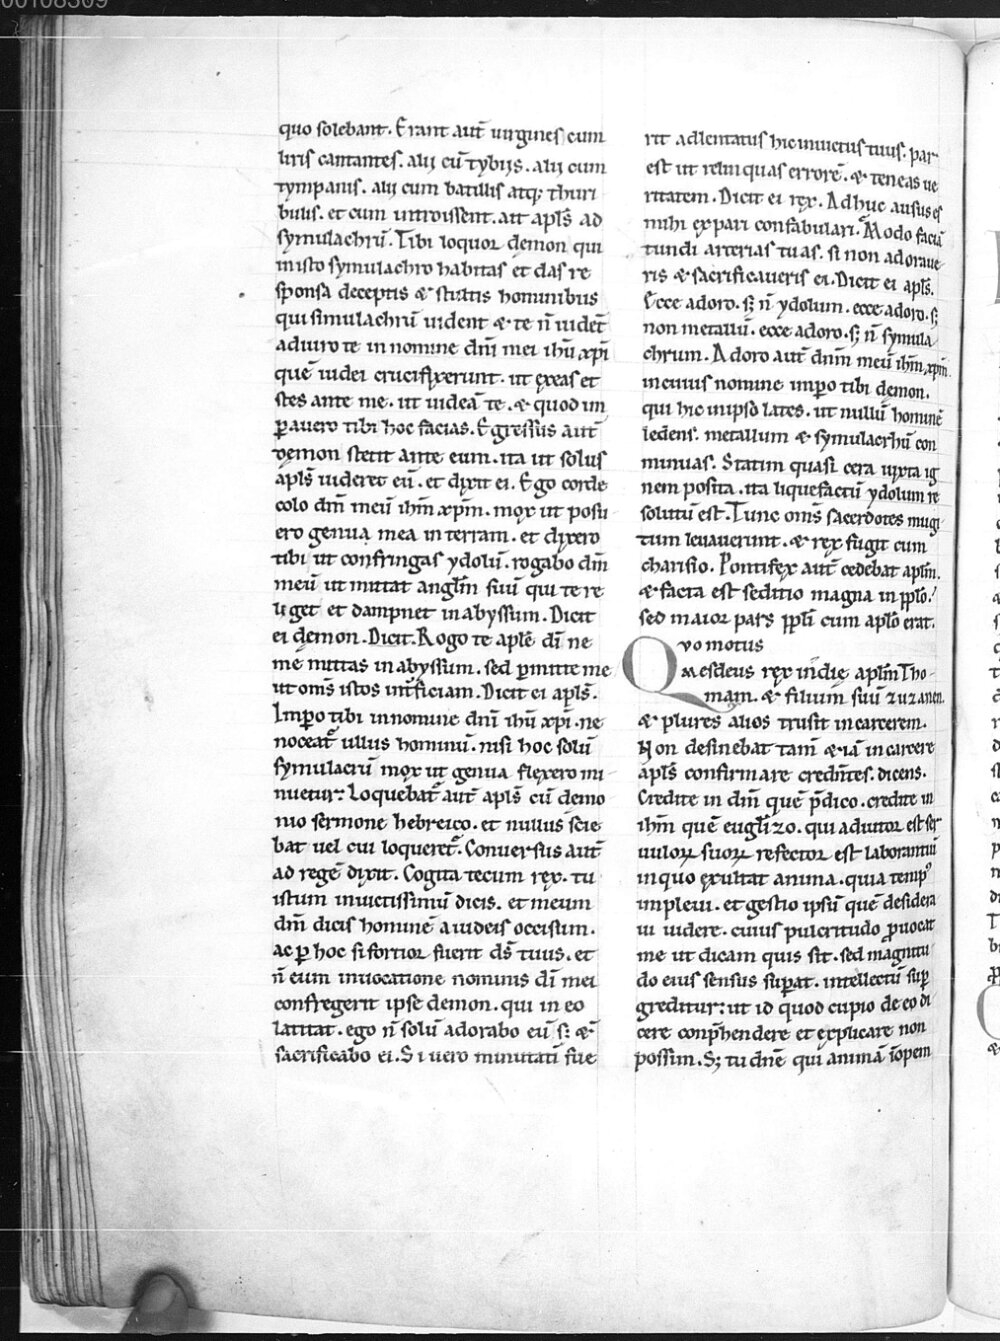 00108309
quo solebant. Erant aut̄ uirgines cum
liris cantantes. alij cū tybijs. alij cum
tympanis. alij cum batillis atq; thuri
bulis. et cum introissent. ait apl̄s ad
symulachrū. Tibi loquor demon qui
in isto symulachro habitas et das re
sponsa deceptis & stultis hominibus
qui simulachrū uident & te n̄ uidēt
adiuro te in nomine dn̄i mei ihū xp̄i
quē iudei crucifixerunt. ut exeas et
stes ante me. ut uideā te. & quod im
ꝑauero tibi hoc facias. Egressus aut̄
demon stetit ante eum. ita ut solus
apl̄s uideret eū. et dixit ei. Ego corde
colo dn̄m meū ihm̄ xp̄m. mox ut posu
ero genua mea in terram. et dixero
tibi ut confringas ydolū. rogabo dn̄m
meū ut mittat angl̄m suū qui te re
liget et dampnet in abyssum. Dicit
ei demon. Dicit. Rogo te apl̄e dī ne
me mittas in abyssum. sed ꝑmitte me
ut om̄s istos int̄ficiam. Dicit ei apl̄s.
Impo tibi in nomine dn̄i ihū xp̄i. ne
noceat̄ ullus hominū. nisi hoc solū
symulacrū mox ut genua flexero mi
nuetur. Loquebat̄ aut̄ apl̄s cū demo
nio sermone hebreico. et nullus scie
bat uel cui loqueret̄. Conuersus aut̄
ad regē dixit. Cogita tecum rex. tu
istum inuictissimū dicis. et meum
dn̄m dicis hominē a iudeis occisum.
ac ꝑ hoc si fortior fuerit ds̄ tuus. et
n̄ eum inuocatione nominis dī mei
confregerit ipse demon. qui in eo
latitat. ego n̄ solū adorabo eū s; &
sacrificabo ei. Si uero minutatī fue
rit adlentatus hic inuictus tuus. par
est ut relinquas errorē. & teneas ue
ritatem. Dicit ei rex. Adhuc ausus es
mihi ex pari confabulari. Modo faciā
tundi arterias tuas. si non adoraue
ris & sacrificaueris ei. Dicit ei apl̄s.
Ecce adoro. s; n̄ ydolum. ecce adoro. s;
non metallū. ecce adoro. s; n̄ symula
chrum. Adoro aut̄ dn̄m meū ihm̄ xp̄m
in cuius nomine impo tibi demon.
qui hic in ipso lates. ut nullū hominē
ledens. metallum & symulacrhū con
minuas. Statim quasi cera iuxta ig
nem posita. ita liquefactū ydolum re
solutū est. Tunc om̄s sacerdotes mugi
tum leuauerunt. & rex fugit cum
charisio. Pontifex aut̄ cedebat apl̄m.
& facta est seditio magna in pplo.
sed maior pars ppl̄i cum apl̄o erat.
Quo motus
Mesdeus rex in die apl̄m Tho
mam. & filium suū zuzanen.
& plures alios trusit in carcerem.
Non desinebat tam̄ & iā in carcere
apl̄s confirmare credn̄tes. dicens.
Credite in dm̄ quē p̄dico. credite in
ihm̄ quē euglīzo. qui adiutor est ser
uuloꝝ suoꝝ refector est laborantiū
in quo exultat anima. quia temp᷒
impleui. et gestio ipsū quē desidera
ui uidere. cuius pulcritudo ꝓuocat
me ut dicam quis sit. sed magnitu
do eius sensus suꝑat. intellectū suꝑ
greditur: ut id quod cupio de eo di
cere conp̄hendere et explicare non
possim. S; tu dn̄e qui animā īopem